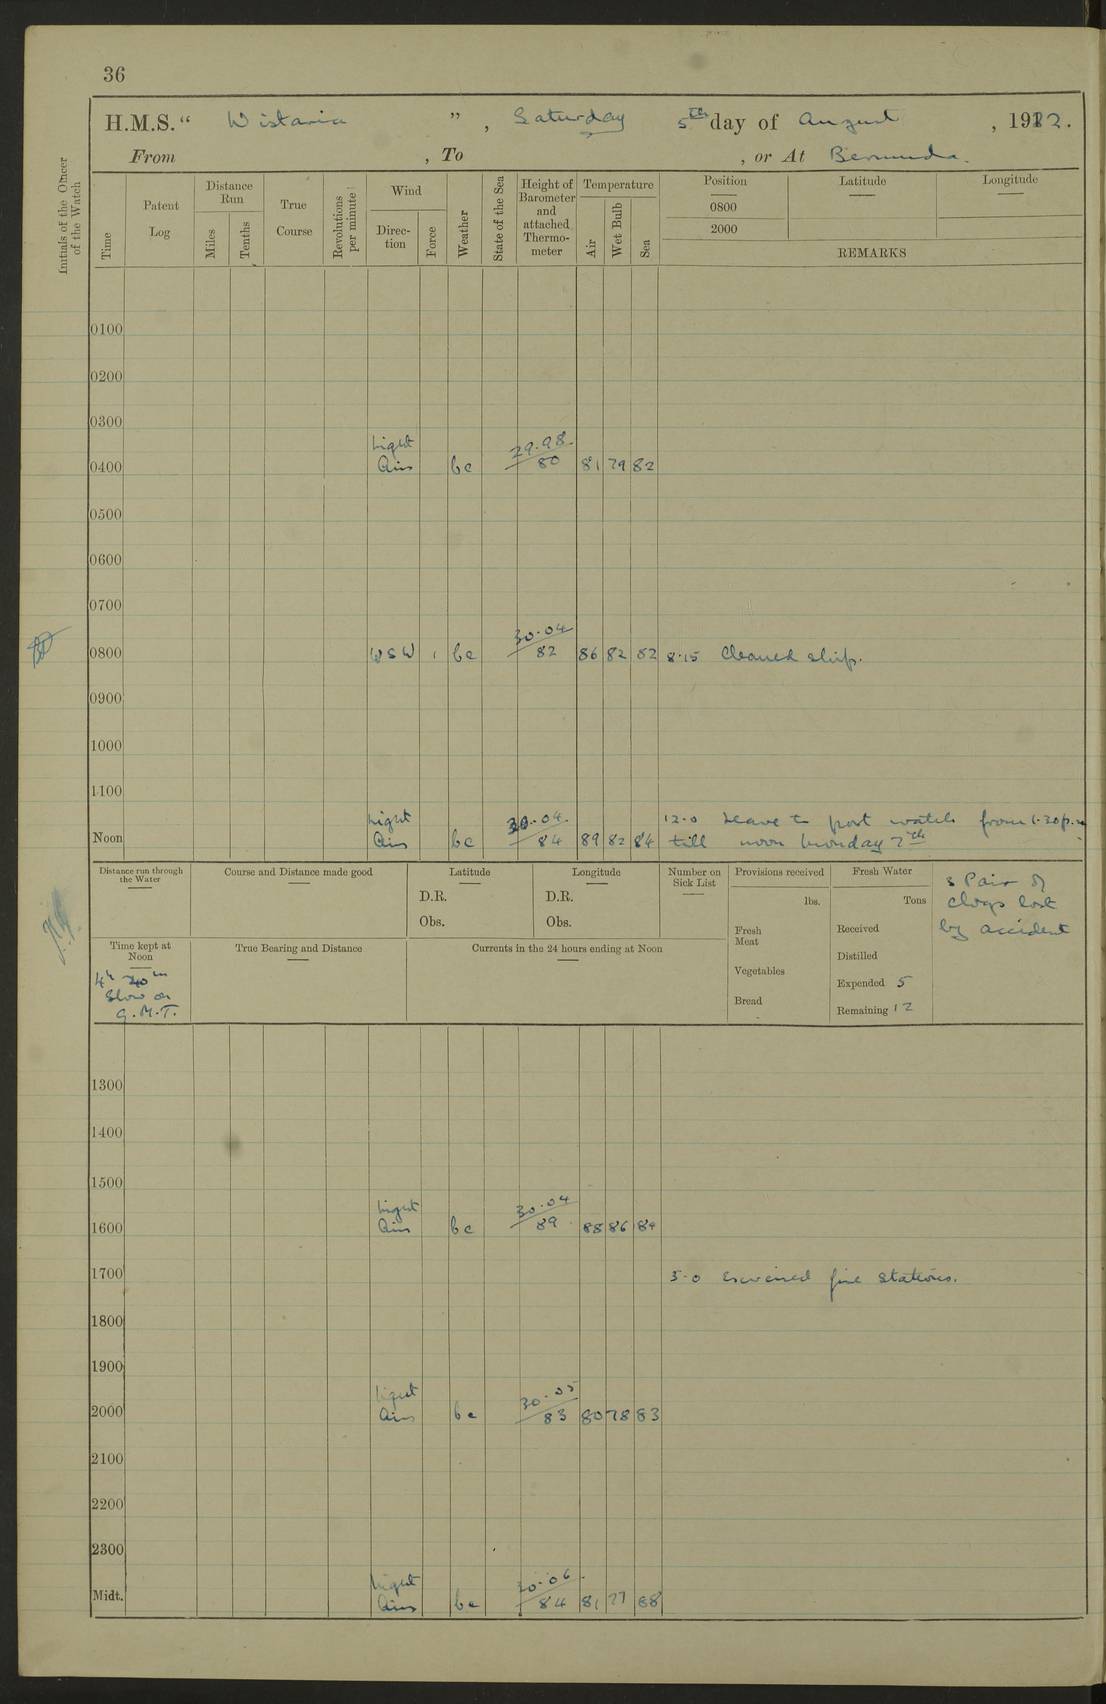 36
H.M.S. “ Wistaria ” , Saturday 5th day of August , 1922.
From , To , or At Bermuda.
Initials of the Officer of the Watch
Time
Patent Log
Distance Run
Miles
Tenths
True Course
Revolutions per minute
Wind
Direc-tion
Force
Weather
State of the Sea
Height of Barometer and attached Thermo-meter
Temperature
Air
Wet Bulb
Sea
Position
0800
2000
Latitude
Longitude
REMARKS
0100
0200
0300
Light 29.98
0400 Airs bc 80 81 79 82
0500
0600
0700
30.04
0800 WSW 1 bc 82 86 82 82 8.15 Cleaned ship.
0900
1000
1100
Light 30.04 12.0 Leave to port watch from 1.30 p.m
Noon Airs bc 84 89 82 84 till noon Monday 7th
Distance run through the Water
Course and Distance made good
Latitude
D.R.
Obs.
Longitude
D.R.
Obs.
Number on Sick List
Provisions received
lbs.
Fresh Meat
Vegetables
Bread
Fresh Water
Tons
Received
Distilled
Expended 5
Remaining 12
3 Pair of
clogs lost
by accident
Time kept at Noon
4h 20m
Slow on
G.M.T.
True Bearing and Distance
Currents in the 24 hours ending at Noon
1300
1400
1500
Light 30.04
1600 Airs bc 89 88 86 84
1700 5.0 Exercised fire stations.
1800
1900
Light 30.05
2000 Airs bc 83 80 78 83
2100
2200
2300
Light 30.06
Midt. Airs bc 84 81 77 88